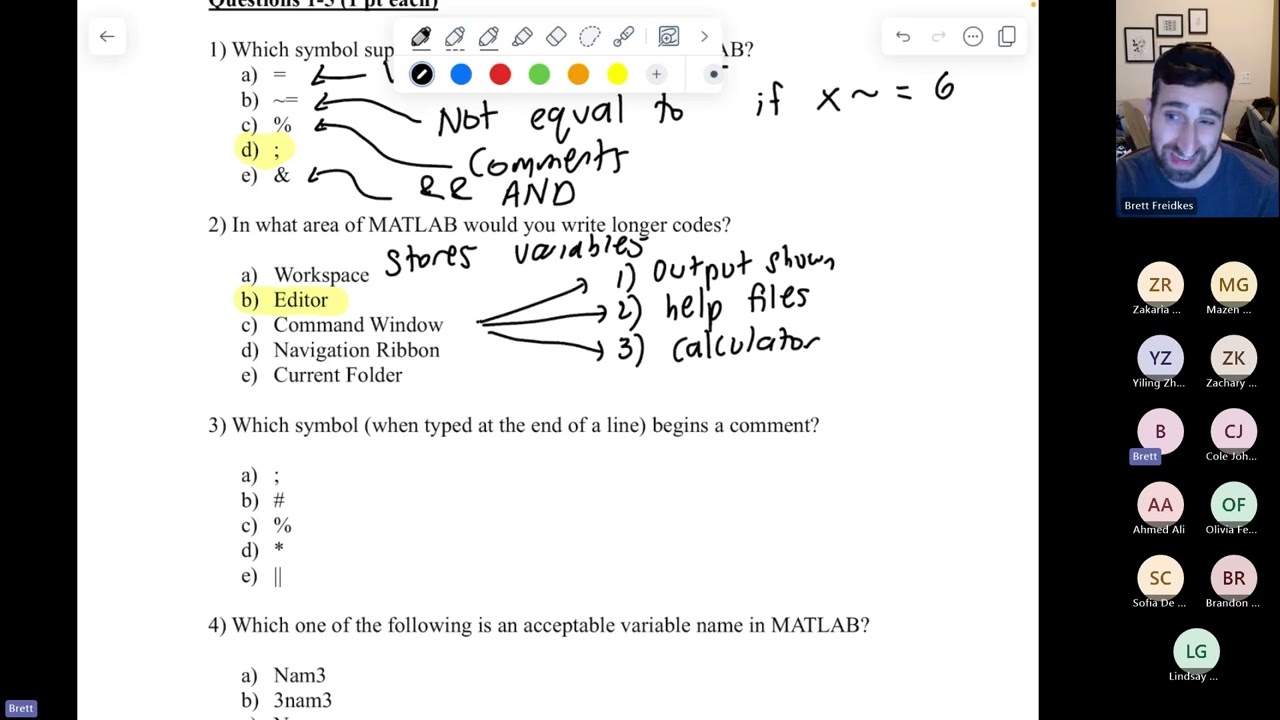 Questions 1-5 (1 pt each)
1) Which symbol sup AB?
a) =
b) ~=
c) %
d) ;
e) &
Not equal to if x ~ = 6
Comments
&& AND
2) In what area of MATLAB would you write longer codes?
Stores variables
a) Workspace
b) Editor
c) Command Window
d) Navigation Ribbon
e) Current Folder
1) Output shown
2) help files
3) calculator
3) Which symbol (when typed at the end of a line) begins a comment?
a) ;
b) #
c) %
d) *
e) ||
4) Which one of the following is an acceptable variable name in MATLAB?
a) Nam3
b) 3nam3
Brett
Brett Freidkes
ZR MG
Zakaria ... Mazen ...
YZ ZK
Yiling Zh... Zachary ...
B CJ
Brett Cole Joh...
AA OF
Ahmed Ali Olivia Fe...
SC BR
Sofia De ... Brandon ...
LG
Lindsay ...